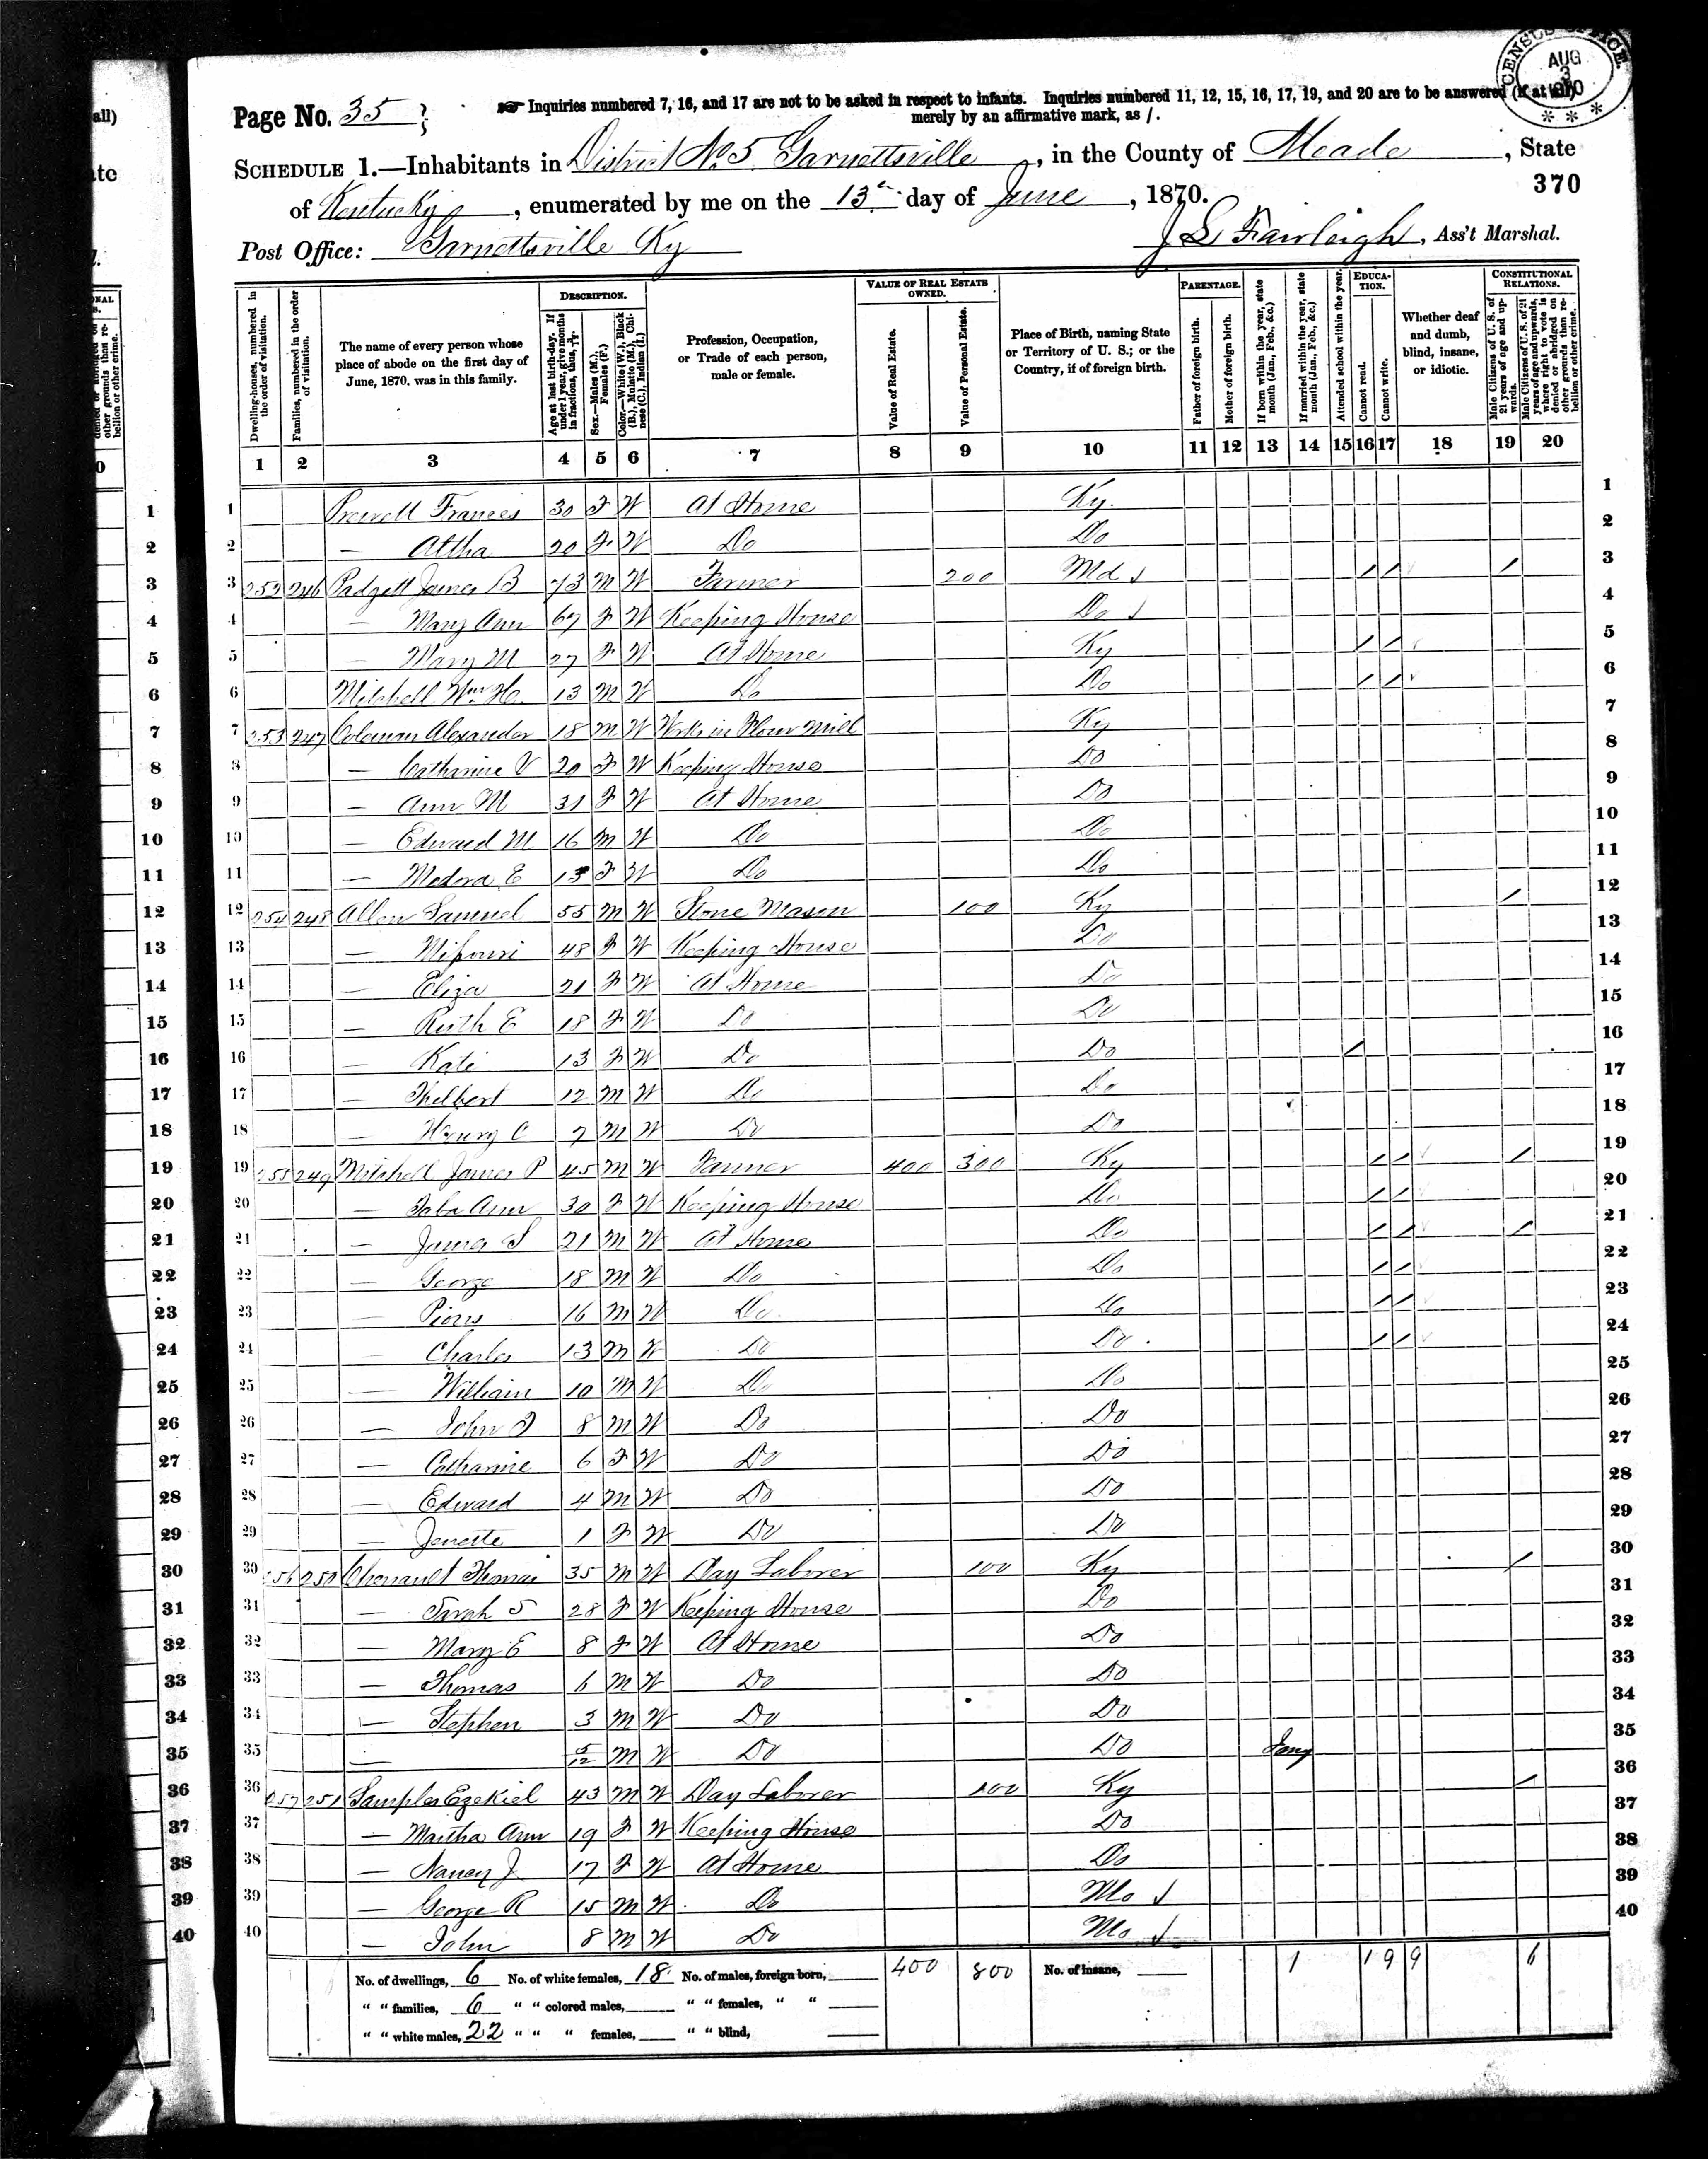 CENSUS OFFICE. AUG 3 1870
Page No. 35
Inquiries numbered 7, 16, and 17 are not to be asked in respect to infants. Inquiries numbered 11, 12, 15, 16, 17, 19, and 20 are to be answered (if at all)
merely by an affirmative mark, as /.
SCHEDULE 1.—Inhabitants in District No. 5 Garnettsville, in the County of Meade, State
370
of Kentucky, enumerated by me on the 13th day of June, 1870.
Post Office: Garnettsville Ky
J L Fairleigh, Ass't Marshal.
Dwelling-houses, numbered in the order of visitation.
Families, numbered in the order of visitation.
The name of every person whose place of abode on the first day of June, 1870, was in this family.
DESCRIPTION.
Age at last birth-day. If under 1 year, give months in fractions, thus, 3/12
Sex.—Males (M.), Females (F.)
Color.—White (W.), Black (B.), Mulatto (M.), Chinese (C.), Indian (I.)
Profession, Occupation, or Trade of each person, male or female.
VALUE OF REAL ESTATE OWNED.
Value of Real Estate.
Value of Personal Estate.
Place of Birth, naming State or Territory of U. S.; or the Country, if of foreign birth.
PARENTAGE.
Father of foreign birth.
Mother of foreign birth.
If born within the year, state month (Jan., Feb., &c.)
If married within the year, state month (Jan., Feb., &c.)
Attended school within the year.
EDUCATION.
Cannot read.
Cannot write.
Whether deaf and dumb, blind, insane, or idiotic.
CONSTITUTIONAL RELATIONS.
Male Citizens of U. S. of 21 years of age and upwards.
Male Citizens of U. S. of 21 years of age and upwards, where right to vote is denied or abridged on other grounds than rebellion or other crime.
1 2 3 4 5 6 7 8 9 10 11 12 13 14 15 16 17 18 19 20
1 Frances 30 F W At Home Ky. 1
2 — Altha 20 F W Do Do 2
3 252 246 Padgett James B 73 M W Farmer 200 Md / / / 3
4 — Mary Ann 67 F W Keeping House Do 4
5 — Mary M 27 F W At Home Ky / / 5
6 Mitchell Wm. H. 13 M W Do Do / / 6
7 253 247 Coleman Alexander 18 M W Works in Flour Mill Ky 7
8 — Catharine V 20 F W Keeping House Do 8
9 — Ann M 31 F W At Home Do 9
10 — Edward M 16 M W Do Do 10
11 — Medora E 13 F W Do Do 11
12 254 248 Allen Samuel 55 M W Stone Mason 100 Ky / 12
13 — Missouri 48 F W Keeping House Do 13
14 — Eliza 21 F W At Home Do 14
15 — Ruth E 18 F W Do Do 15
16 — Kate 13 F W Do Do / 16
17 — Thelbert 12 M W Do Do 17
18 — Henry C 7 M W Do Do 18
19 255 249 Mitchell James P 45 M W Farmer 400 300 Ky / / / 19
20 — Ann 30 F W Keeping House Do / / 20
21 — James S 21 M W At Home Do / / / 21
22 — George 18 M W Do Do / / 22
23 — Pious 16 M W Do Do / / 23
24 — Charles 13 M W Do Do / / 24
25 — William 10 M W Do Do 25
26 — John T 8 M W Do Do 26
27 — Catharine 6 F W Do Do 27
28 — Edward 4 M W Do Do 28
29 — Jenette 1 F W Do Do 29
30 256 250 Chenault Thomas 35 M W Day Laborer 100 Ky / 30
31 — Sarah S 28 F W Keeping House Do 31
32 — Mary E 8 F W At Home Do 32
33 — Thomas 6 M W Do Do 33
34 — Stephen 3 M W Do Do 34
35 — 5/12 M W Do Do Jany 35
36 257 251 Samples Ezekiel 43 M W Day Laborer 100 Ky / 36
37 — Martha Ann 19 F W Keeping House Do 37
38 — Nancy J. 17 F W At Home Do 38
39 — George R 15 M W Do Mo 39
40 — John 8 M W Do Mo 40
No. of dwellings, 6 No. of white females, 18 No. of males, foreign born, 400 800 No. of insane, 1 1 9 9 6
" " families, 6 " " colored males, " " females, " "
" " white males, 22 " " " females, " " blind,